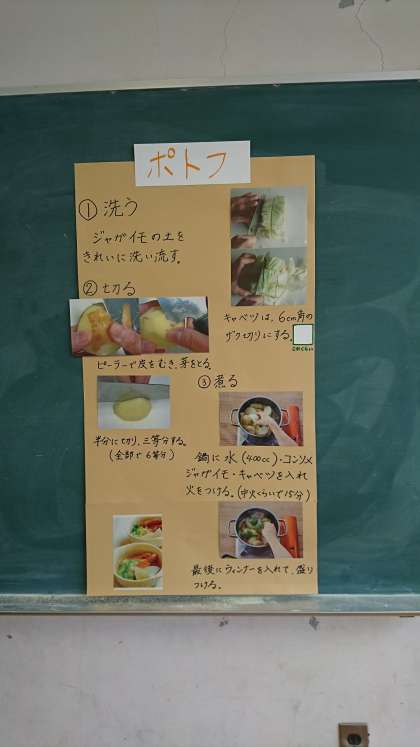 ポトフ
① 洗う
ジャガイモの土を
きれいに洗い流す。
② 切る
ピーラーで皮をむき、芽をとる。
半分に切り、三等分する。
(全部で6等分)
キャベツは、6cm角の
ザク切りにする。
このくらい
③ 煮る
鍋に水(400cc)・コンソメ
ジャガイモ・キャベツを入れ
火をつける。(中火くらいで15分)
最後にウィンナーを入れて、盛り
つける。